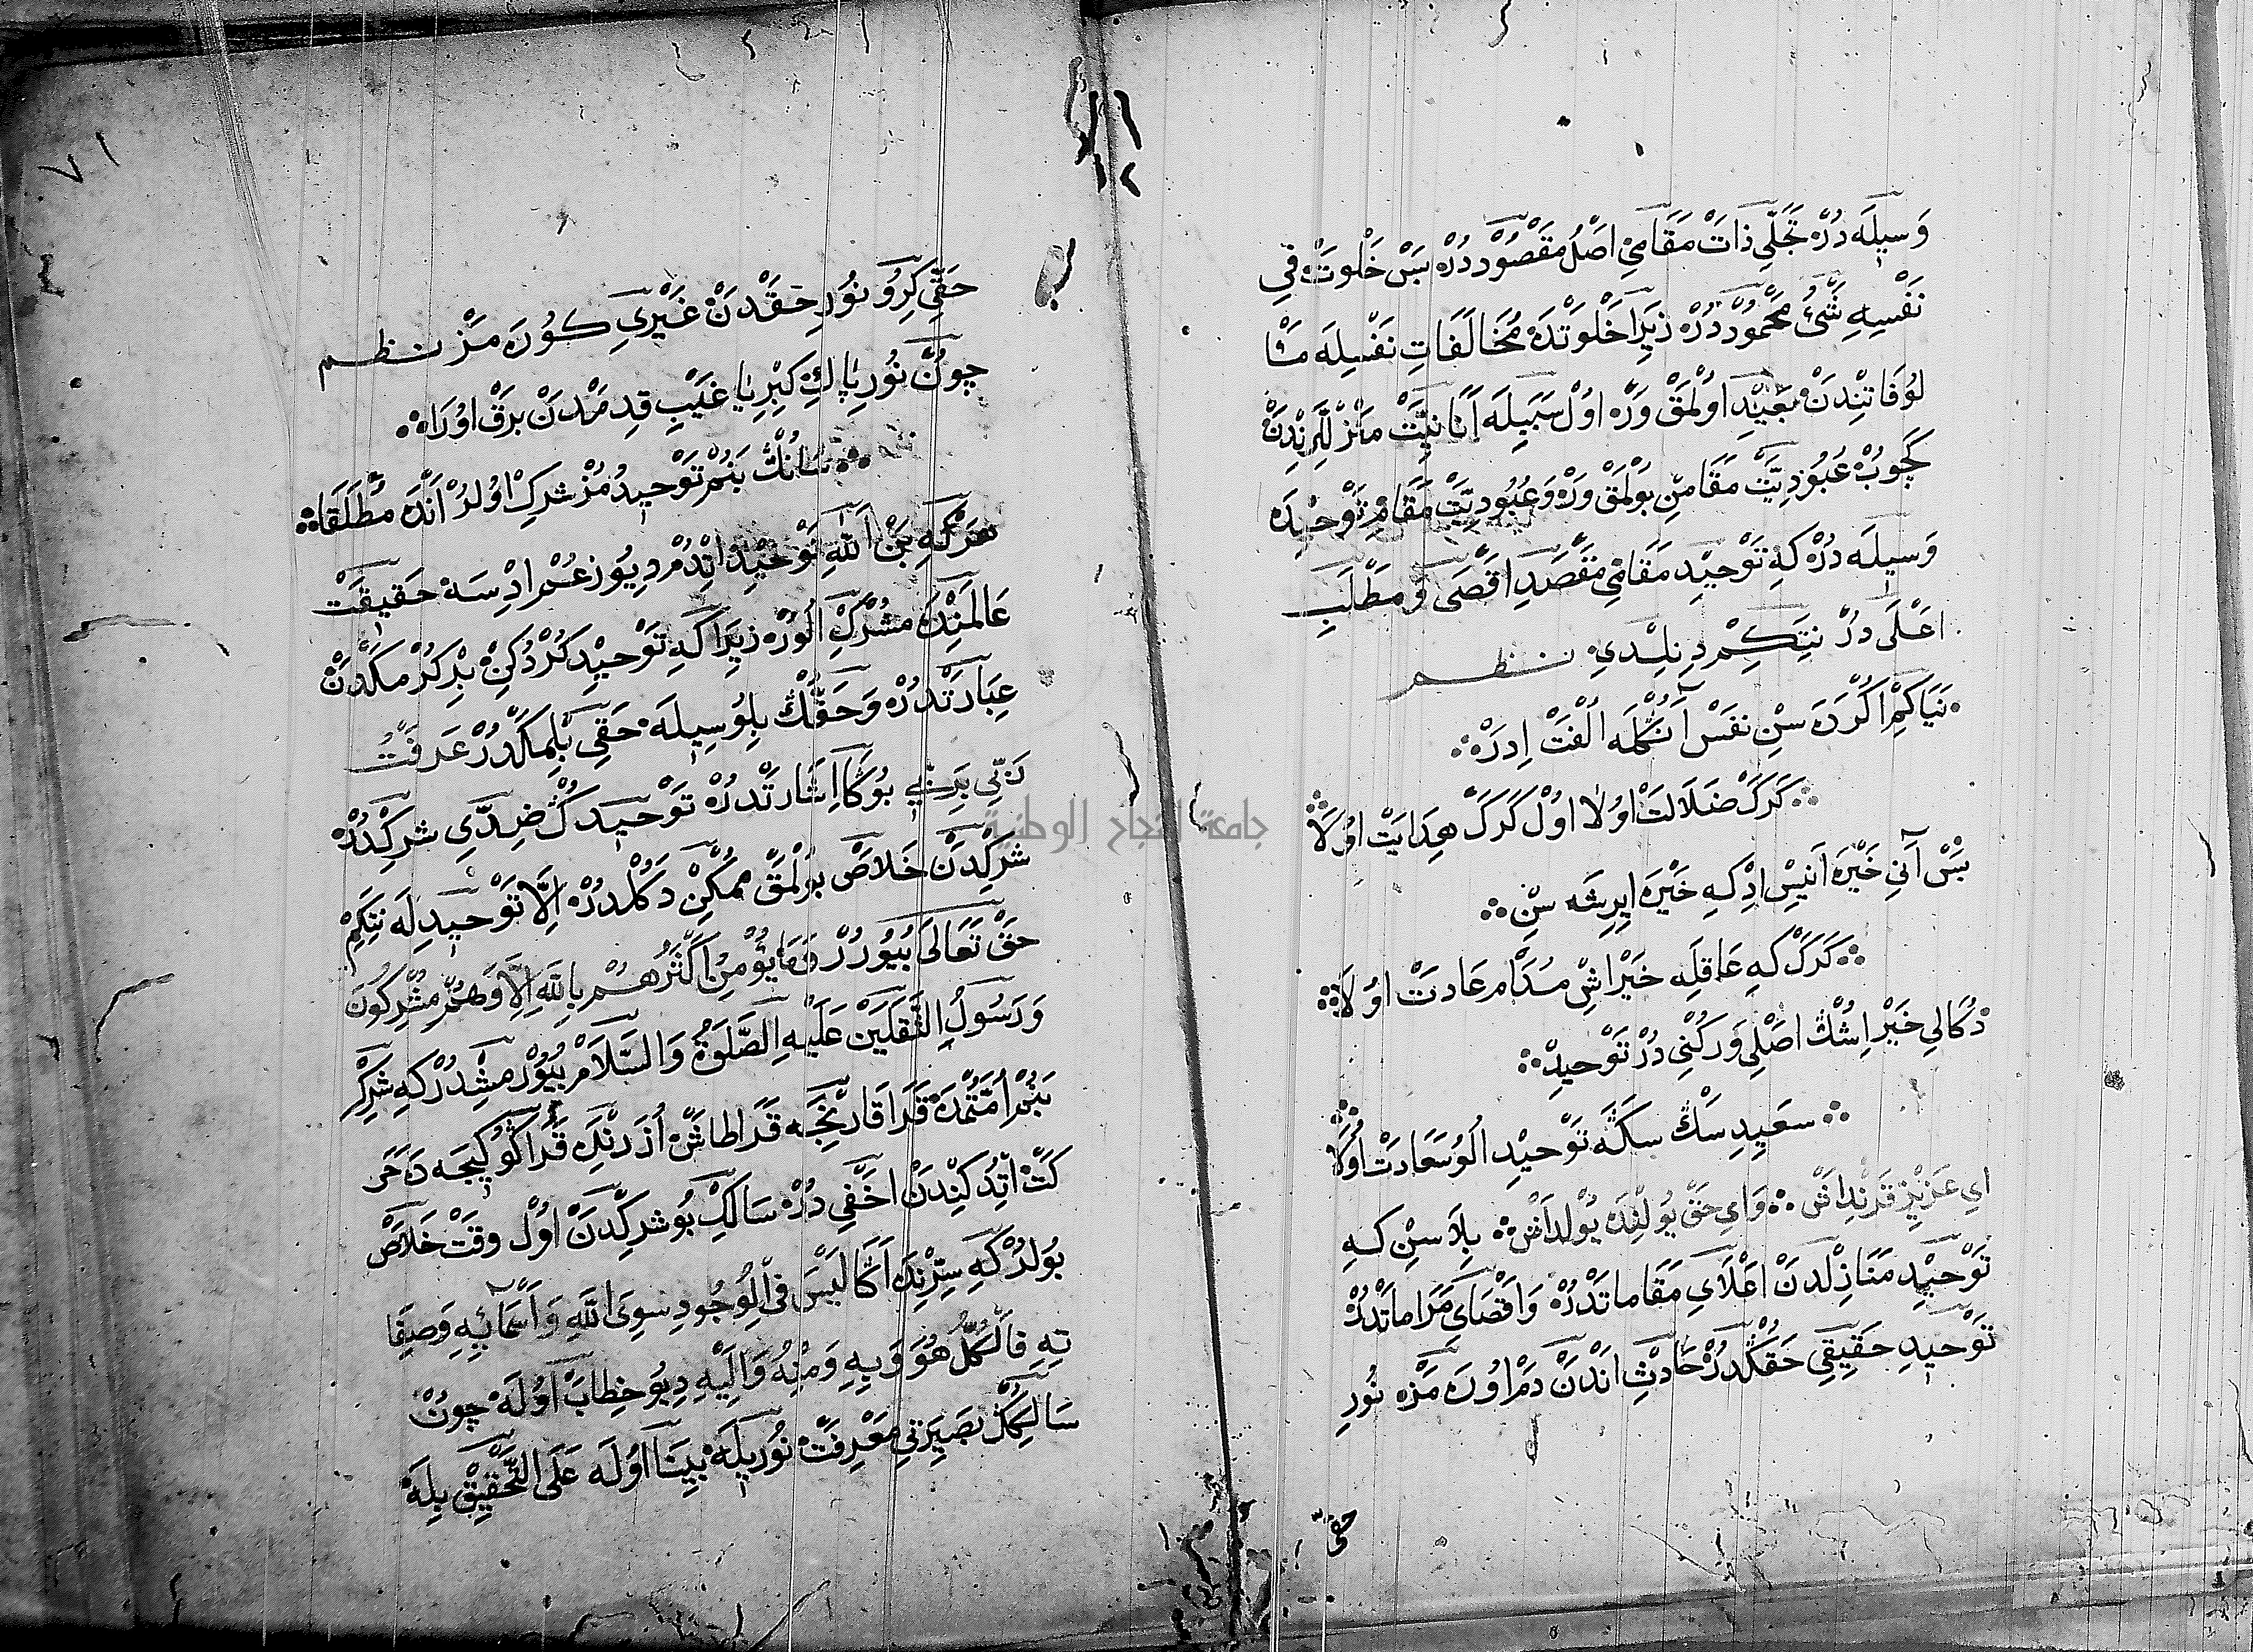 وَسِيلَه دُرْ تَجَلِّيِ ذَاتْ مَقَامِيْ اَصْلُ مَقْصُودْ دُرْ بَسْ خَلْوَتْ فِي
نَفْسِهِ شَيْءُ مَحْمُودْ دُرْ زِيَرا خَلْوَتْدَه مُخَالَفَاتِ نَفْسِيلَه مَاْ
لُوُفَاتِنْدَنْ بَعِيْد اوُلْمَقْ وَرْ اوُلْ سَبَبِيلَه اَنَانِيَّتْ مَنْزِلْلَرِنْدَنْ
كَچُوبْ عُبُودِيَّتْ مَقَامِنْ بُولْمَقْ وَرْ وَ عُبُودِيَّتْ مَقَامِ تَوْحِيْدَه
وَسِيلَه دُرْ كِه تَوْحِيد مَقَامِيْ مَقْصَدِ اَقْصَى وَ مَطْلَبِ
اَعْلَى دُرْ نِتَكِمْ دِنِلْدِيْ نظم
نَيَاكِمْ اكْرَه سِنْ نَفَسْ اَنُكْلَه اُلْفَتْ اِدَرْ
كَرَكْ ضَلَالَتْ اوُلَا اوُلْ كَرَكْ هِدَايَتْ اوُلَا
بَسْ آنِي خَيْرَه اَنِيسْ اِدْ كِه خَيْرَه اِيرِشَه سِنْ
كَرَكْ كِه عَاقِلَه خَيْر اِشْ مُدَامْ عَادَتْ اوُلَا
دُكَالِي خَيْر اِشُكْ اَصْلِي وَ رُكْنِي دُرْ تَوْحِيدْ
سَعِيدِسْكْ سَكَه تَوْحِيْد اُلُو سَعَادَتْ اوُلَا
اَيِ عَزِيزْ قَرِنْدَاشْ وَايِ حَقْ يُولِنْدَه يُولْدَاشْ بِلَاسِنْ كِه
تَوْحِيد مَنَازِلْدَنْ اَعْلَايِ مَقَامَاتْدُرْ وَ اَقْصَايِ مَرَامَاتْدُرْ
تَوْحِيدِ حَقِيقِي حَقُكْدُرْ حَادِثْ اَنْدَنْ دَمْ اوُرَه مَزْ نُورِ
حقى
٧١
حَقِّي كِرُو نُورِ حَقْدَنْ غَيْرِي كُورَه مَزْ نظم
چُونْ نُورِ پَاكِ كِبْرِيَا غَيْبِ قِدِمْدَنْ بَرْقْ اوُرَا
سَانُكْ بَنُمْ تَوْحِيدُمُزْ شِرِكْ اوُلُرْ اَنْدَه مُطْلَقَا
هَرْكِه بَنْ اَللهِ تَوْحِيْد اِتْدُمْ دِيُو زُعُمْ اِدْسَه حَقِيقَتْ
عَالَمِنْدَه مُشْرِكْ اُلُورْ زِيَرا كِه تَوْحِيْد كُرْدُكِنْ بِرْ كُرْمَكْدَنْ
عِبَارَتْدُرْ وَ حَقُّكْ بِلُوسِيلَه حَقِّي بِلْمَكْدُرْ عَرَفْتُ
رَبِّي بِرَبِّي بُوكَا اِشَارَتْدُرْ تَوْحِيدُكْ ضِدِّي شِرِكْدُرْ
شِرِكْدَنْ خَلَاصْ بُولْمَقْ مُمْكِنْ دَكُلْدُرْ اِلَّا تَوْحِيدِلَه نِتَكِمْ
حَقْ تَعَالَى بُيُورُرْ وَمَا يُؤْمِنُ اَكْثَرُهُمْ بِاللهِ اِلَّا وَهُمْ مُشْرِكُونَ
وَ رَسُولُ الثَّقَلَيْن عَلَيْهِ الصَّلَوةُ وَالسَّلَامْ بُيُورْمِشْدُرْ كِه شِرِكْ
بَنُمْ اُمَّتُمْدَه قَرَا قَارِنْجَه قَرَا طَاشْ اُزَرِنْدَه قَرَاكُو كِيجَه دَه حَرَ
كَتْ اِتْدُكِنْدَنْ اَخْفَى دُرْ سَالِكْ بُو شِرِكْدَنْ اوُلْ وَقَتْ خَلَاصْ
بُولُرْ كِه سِرِّنْدَه اَكَا لَيْسَ فِي الْوُجُودِ سِوَى اللهِ وَ اَسْمَائِهِ وَصِفَا
تِهِ فَالْكُلُّ هُوَ وَبِهِ وَمِنْهُ وَاِلَيْهِ دِيُو خِطَابْ اوُلَه چُونْ
سَالِكُكْ بَصِيَرتِي مَعْرِفَتْ نُورِيلَه بِينَا اوُلَه عَلَى التَّحْقِيقْ بِلَه
جامعة النجاح الوطنية